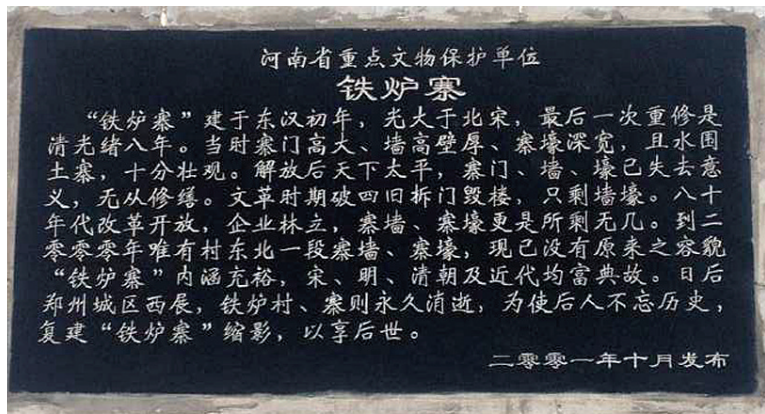 河南省重点文物保护单位
铁炉寨
“铁炉寨”建于东汉初年，光大于北宋，最后一次重修是
清光绪八年。当时寨门高大、墙高壁厚、寨壕深宽，且水围
土寨，十分壮观。解放后天下太平，寨门、墙、壕已失去意
义，无从修缮。文革时期破四旧拆门毁楼，只剩墙壕。八十
年代改革开放，企业林立，寨墙、寨壕更是所剩无几。到二
零零零年唯有村东北一段寨墙、寨壕，现已没有原来之容貌
“铁炉寨”内涵充裕，宋、明、清朝及近代均富典故。日后
郑州城区西展，铁炉村、寨则永久消逝，为使后人不忘历史，
复建“铁炉寨”缩影，以享后世。
二零零一年十月发布